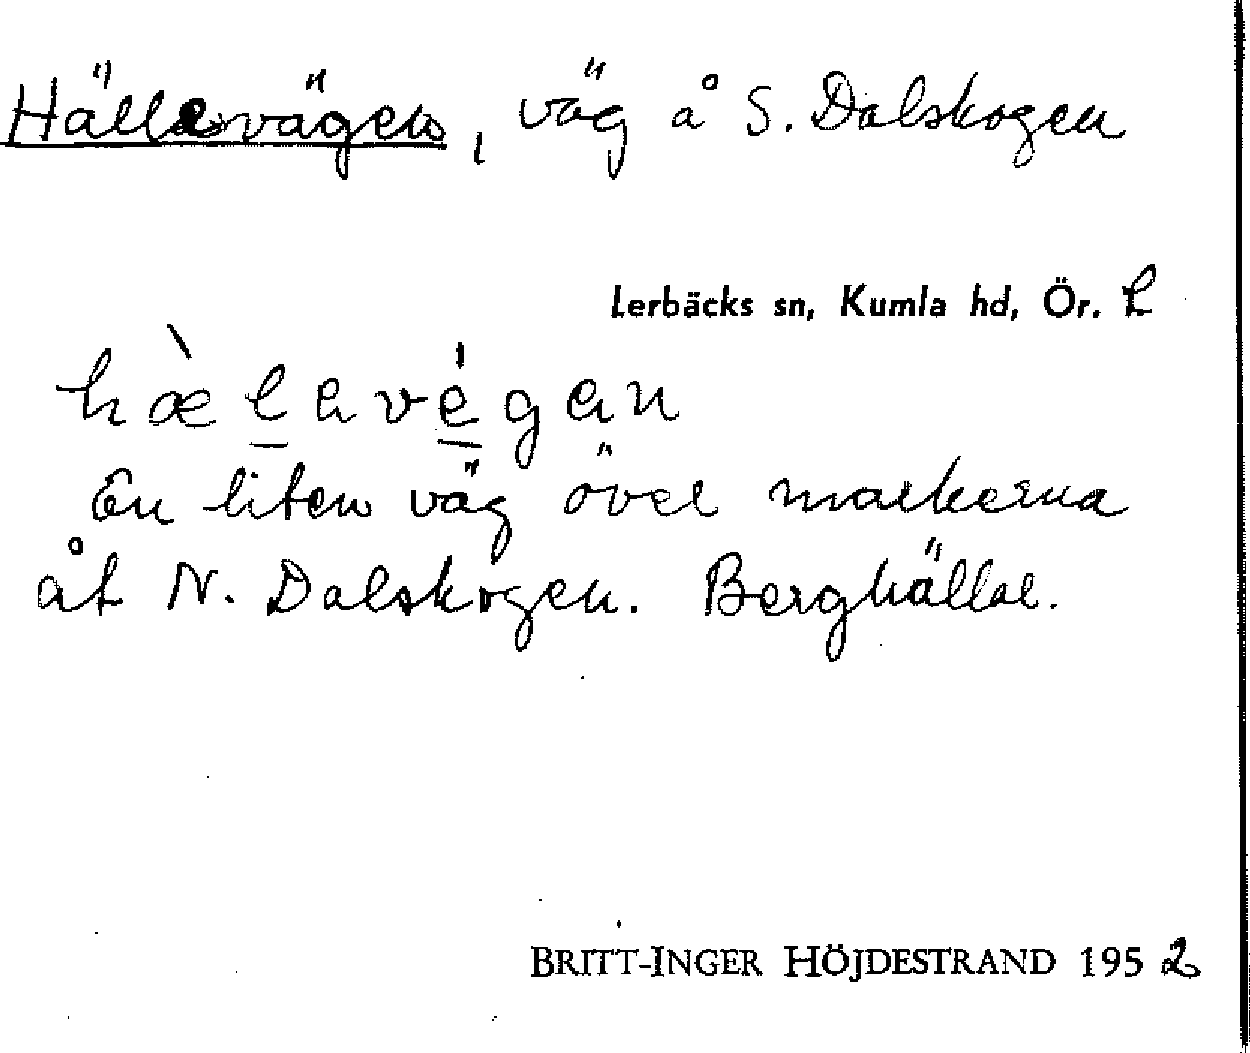 Hällevägen, väg å S. Dalskogen
Lerbäcks sn, Kumla hd, Ör. L
hæ̀lavégan
En liten väg över markerna
åt N. Dalskogen. Berghällar.
BRITT-INGER HÖJDESTRAND 1952